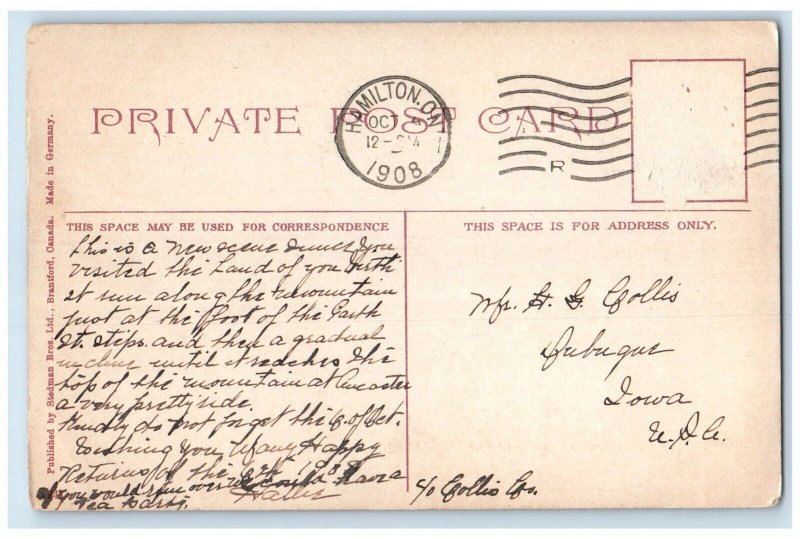 PRIVATE POST CARD
HAMILTON, ONT
OCT
12 -
1908
R
Published by Stedman Bros. Ltd., Brantford, Canada. Made in Germany.
THIS SPACE MAY BE USED FOR CORRESPONDENCE
This is a new scene since you
visited the Land of you birth
it runs along the mountain
just at the foot of the Garth
St. steps and then a gradual
incline until it reaches the
top of the mountain at Ancaster
a very pretty ride.
Kindly do not forget the 8. of Oct.
Wishing You Many Happy
Returns of the 1908
If you would run over we could have a
Tea Party.
THIS SPACE IS FOR ADDRESS ONLY.
Mr. H. G. Collis
Dubuque
Iowa
U.S.A.
c/o Collis Co.